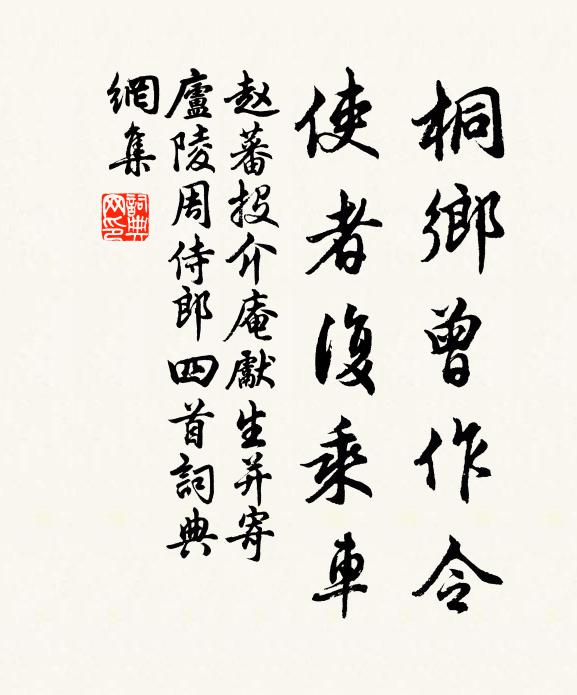 桐鄉曾作令
使者復乘車
赵蕃投介庵獻生并寄
廬陵周侍郎四首詞典
網集
詞典
网印